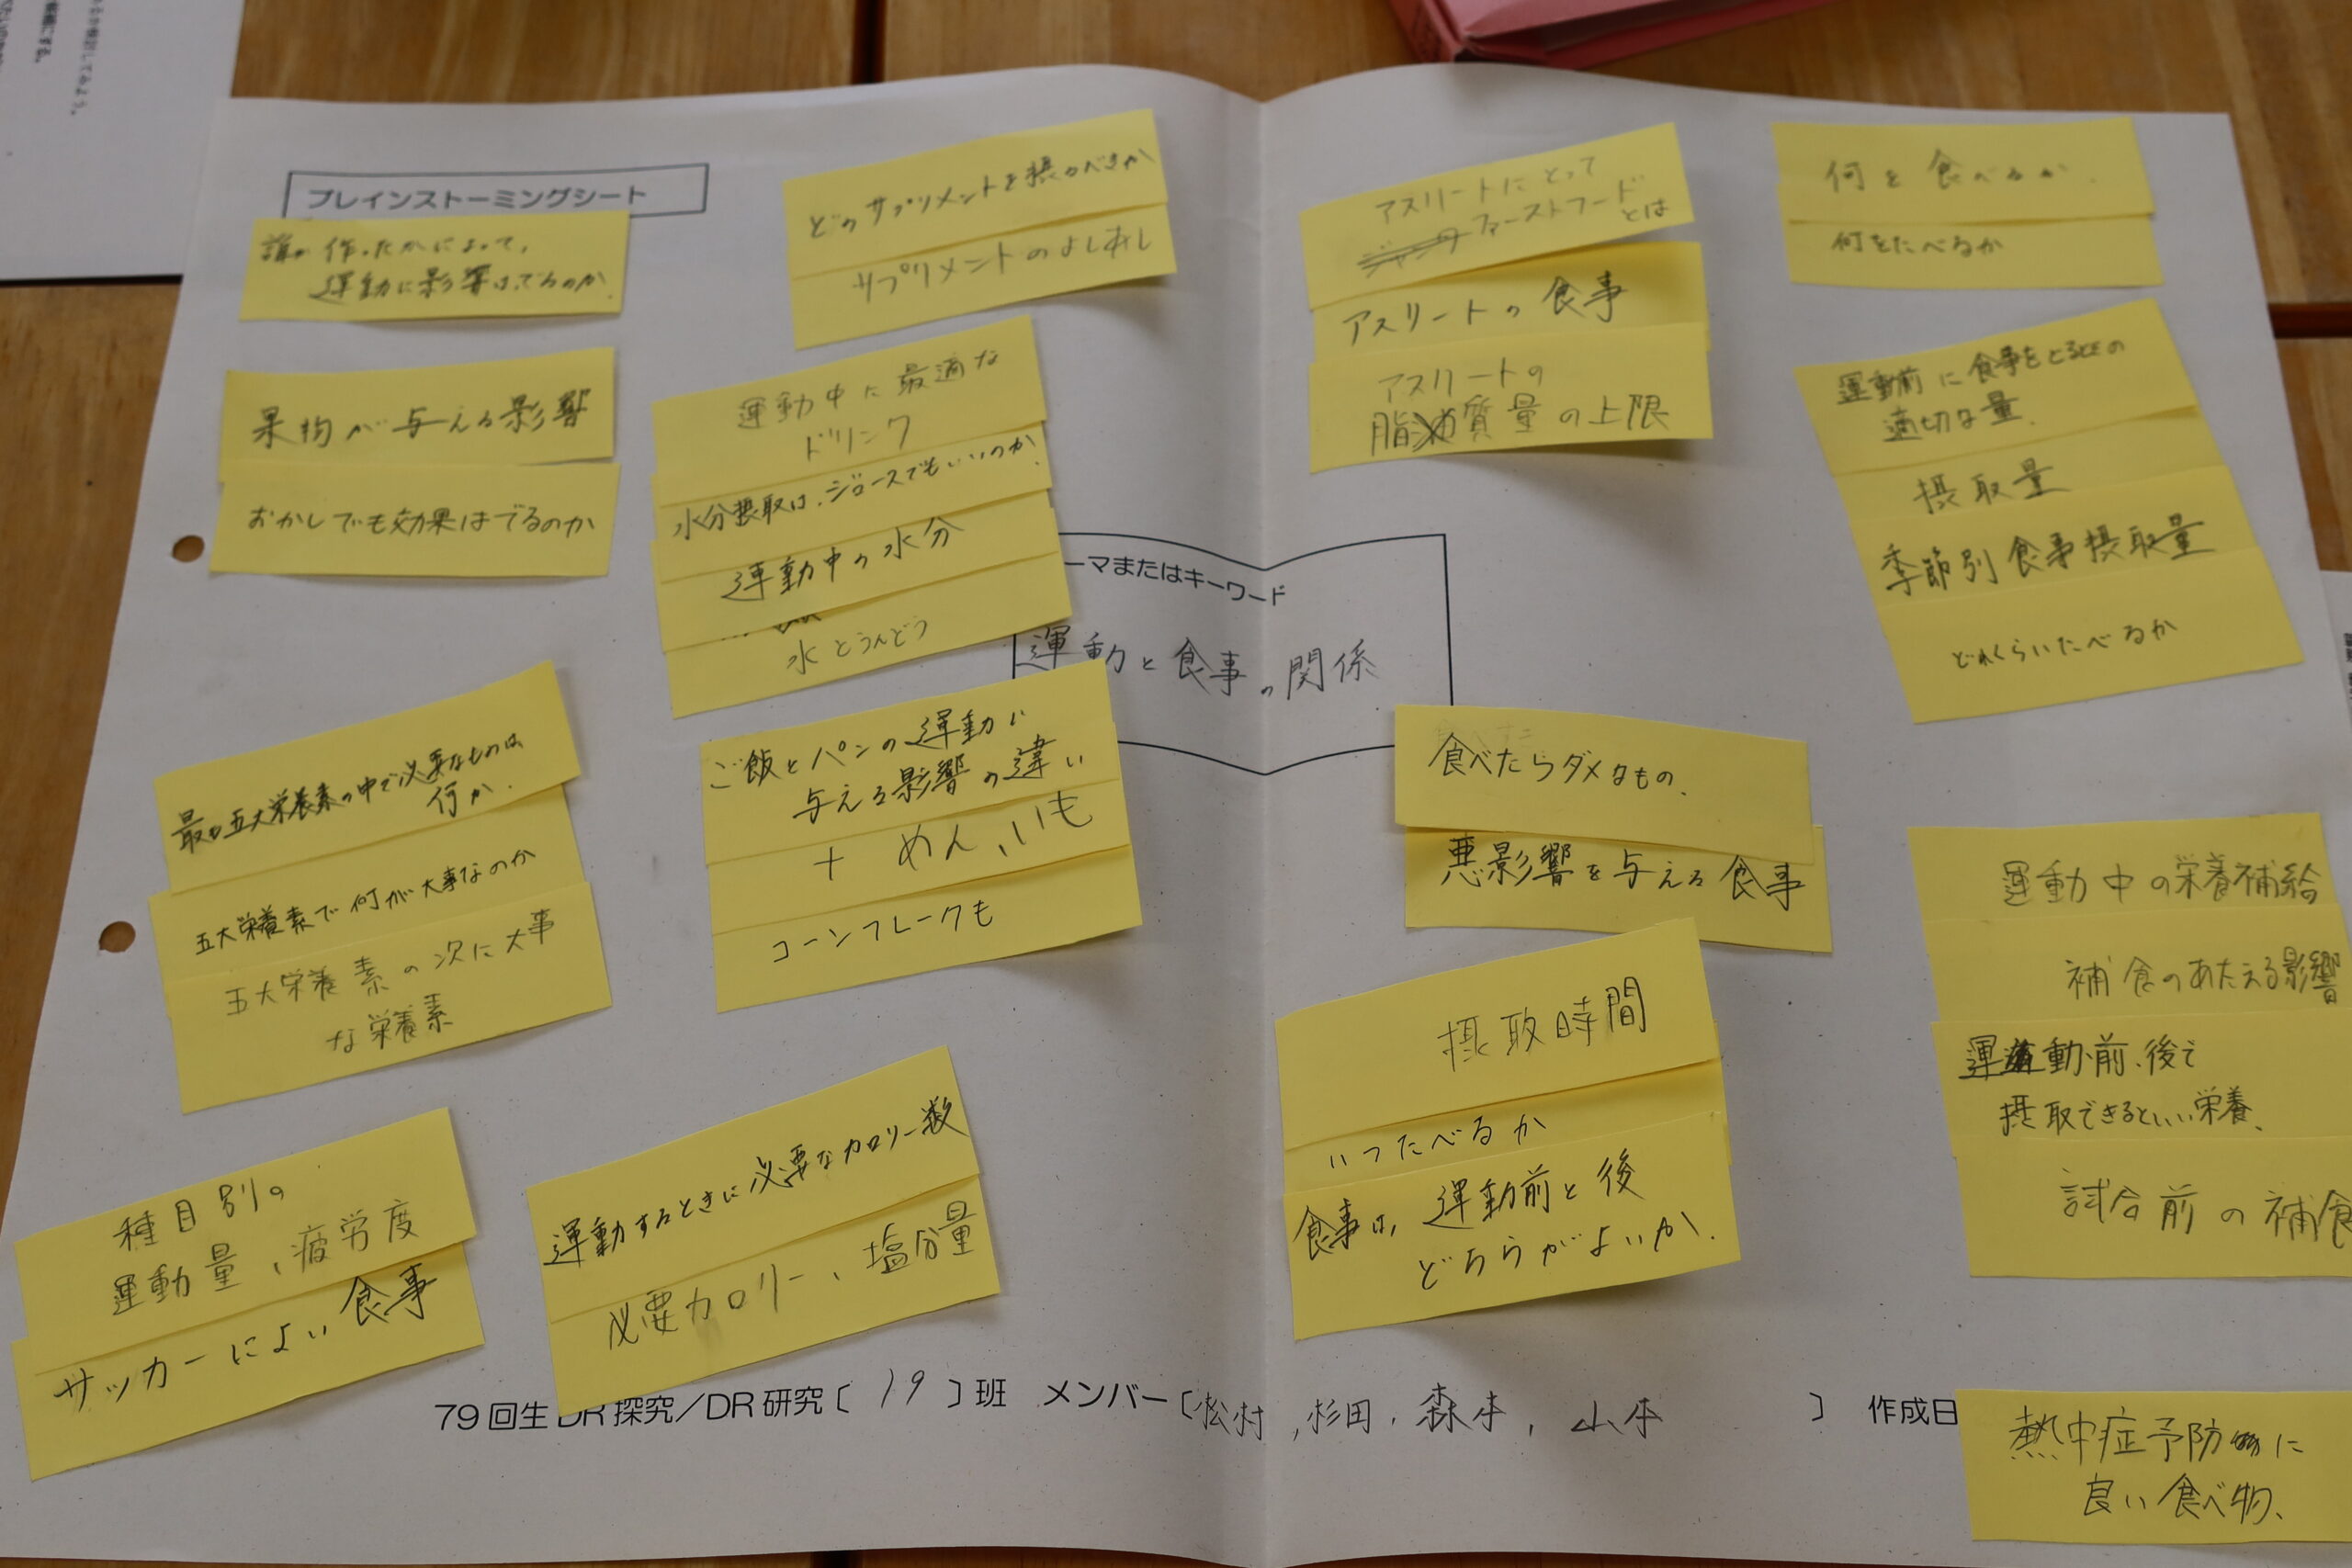 ブレインストーミングシート
誰が作ったかによって、
運動に影響はでるのか
果物が与える影響
おかしでも効果はでるのか
どのサプリメントを摂るべきか
サプリメントのよしあし
運動中に最適な
ドリンク
水分摂取は、ジュースでもいいのか
運動中の水分
水とうんどう
アスリートにとって
ファーストフード
とは
アスリートの食事
アスリートの
脂質量の上限
何を食べるか.
何をたべるか
運動前に食事をとるときの
適切な量.
摂取量
季節別食事摂取量
どれくらいたべるか
ーマまたはキーワード
運動と食事の関係
最も五大栄養素の中で必要なものは
何か.
五大栄養素で何が大事なのか
五大栄養素の次に大事
な栄養素
ご飯とパンの運動に
与える影響の違い
+ めん、いも
コーンフレークも
食べたらダメなもの.
悪影響を与える食事
摂取時間
いつたべるか
食事は、運動前と後
どちらがよいか.
運動中の栄養補給
補食のあたえる影響
運動前、後で
摂取できるといい栄養、
試合前の補食
種目別の
運動量、疲労度
サッカーによい食事
運動するときに必要なカロリー数
必要カロリー、塩分量
79回生DR探究/DR研究〔 19 〕班 メンバー〔松村, 杉田, 森本, 山本 〕 作成日
熱中症予防に
良い食べ物、